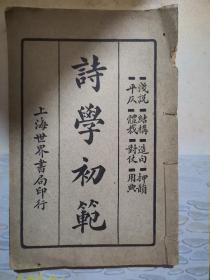 淺說 結構 造句 押韻
平仄 體裁 對仗 用典
詩學初範
上海世界書局印行